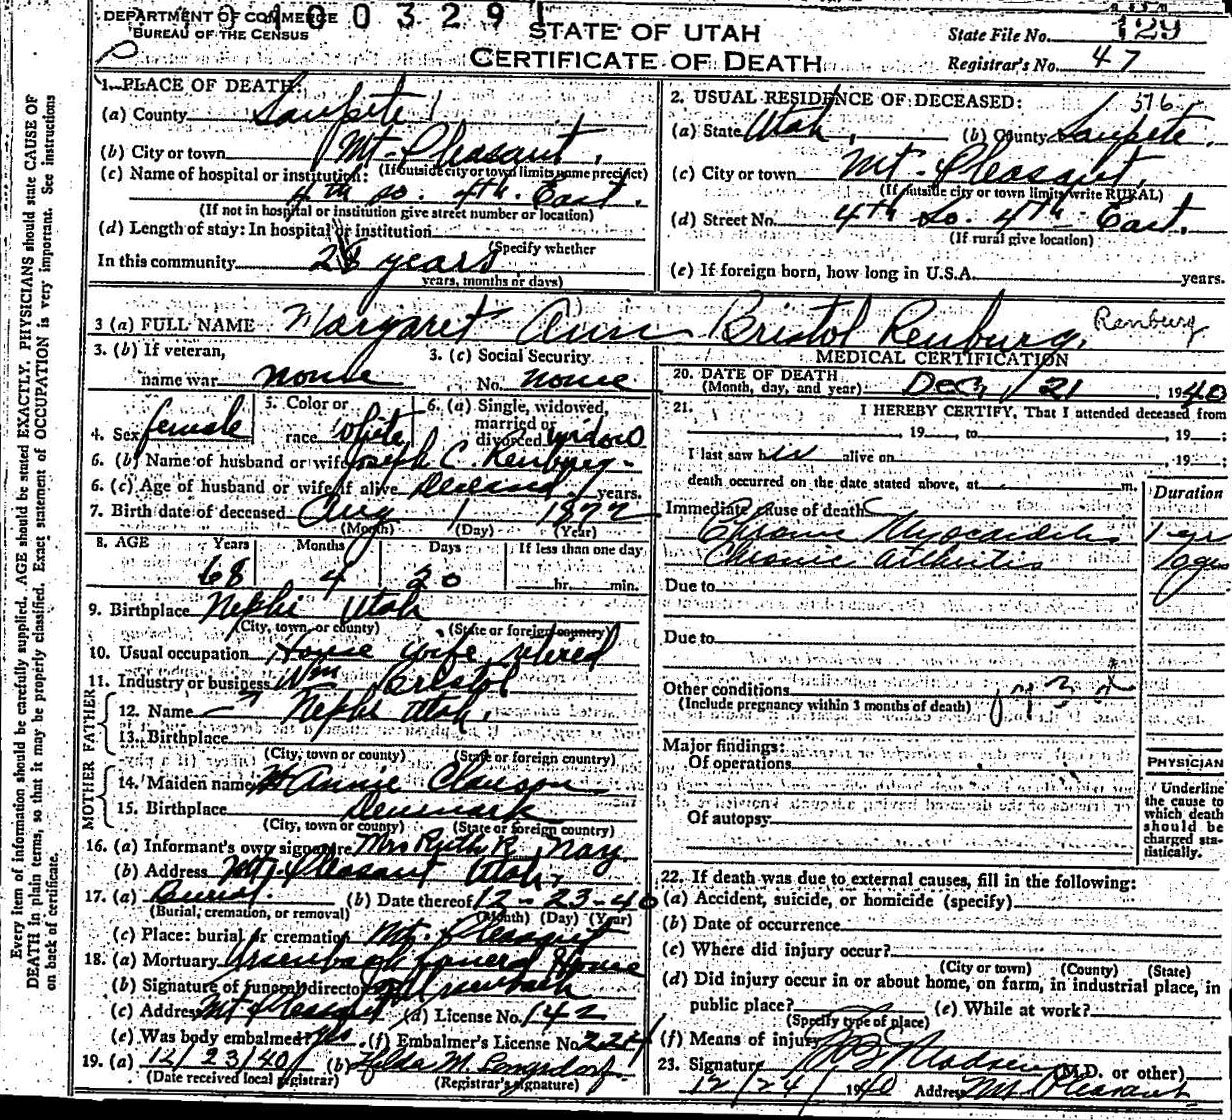 0400329
DEPARTMENT OF COMMERCE
BUREAU OF THE CENSUS
STATE OF UTAH
CERTIFICATE OF DEATH
State File No. 129
Registrar's No. 47
1. PLACE OF DEATH:
(a) County Sanpete
(b) City or town Mt. Pleasant.
(If outside city or town limits name precinct)
(c) Name of hospital or institution:
4th So. 4th East.
(If not in hospital or institution give street number or location)
(d) Length of stay: In hospital or institution
(Specify whether
In this community 28 years
years, months or days)
2. USUAL RESIDENCE OF DECEASED:
(a) State Utah. (b) County Sanpete.
(c) City or town Mt. Pleasant.
(If outside city or town limits write RURAL)
(d) Street No. 4th So. 4th East.
(If rural give location)
(e) If foreign born, how long in U.S.A. years.
3 (a) FULL NAME Margaret Ann Bristol Renburg. Renburg
3. (b) If veteran,
name war none
3. (c) Social Security
No. none
4. Sex female
5. Color or
race White
6. (a) Single, widowed,
married or
divorced widow
6. (b) Name of husband or wife Joseph C. Renburg
6. (c) Age of husband or wife if alive Deceased years.
7. Birth date of deceased Aug 1 1872
(Month) (Day) (Year)
8. AGE Years Months Days If less than one day
68 4 20 hr. min.
9. Birthplace Nephi Utah
(City, town, or county) (State or foreign country)
10. Usual occupation House wife retired
11. Industry or business
FATHER
Wm Bristol
12. Name
Nephi Utah.
13. Birthplace
(City, town or county) (State or foreign country)
MOTHER
14. Maiden name Annie Clauson
15. Birthplace Denmark
(City, town or county) (State or foreign country)
16. (a) Informant's own signature Mrs Ruth R. Nay
(b) Address Mt. Pleasant Utah.
17. (a) Burial. (b) Date thereof 12-23-40
(Burial, cremation, or removal) (Month) (Day) (Year)
(c) Place: burial or cremation Mt. Pleasant
18. (a) Mortuary Ursenbach Funeral Home
(b) Signature of funeral director Ursenbach
(c) Address Mt Pleasant (d) License No. 142
(e) Was body embalmed? Yes. (f) Embalmer's License No. 224
19. (a) 12/23/40 (b) Hilda M. Longsdorf
(Date received local registrar) (Registrar's signature)
MEDICAL CERTIFICATION
20. DATE OF DEATH
(Month, day, and year) Dec. 21, 1940
21. I HEREBY CERTIFY, That I attended deceased from
, 19 , to , 19 :
I last saw her alive on , 19 :
death occurred on the date stated above, at m.
Duration
Immediate cause of death
Chronic Myocarditis 1 yr
Chronic arthritis
Due to
Due to
Other conditions
(Include pregnancy within 3 months of death)
Major findings:
Of operations
Of autopsy
PHYSICIAN
Underline
the cause to
which death
should be
charged sta-
tistically.
22. If death was due to external causes, fill in the following:
(a) Accident, suicide, or homicide (specify)
(b) Date of occurrence
(c) Where did injury occur?
(City or town) (County) (State)
(d) Did injury occur in or about home, on farm, in industrial place, in
public place? (e) While at work?
(Specify type of place)
(f) Means of injury
23. Signature Madsen (M.D. or other)
12/24/1940 Address Mt Pleasant
Every item of information should be carefully supplied. AGE should be stated EXACTLY. PHYSICIANS should state CAUSE OF
DEATH in plain terms, so that it may be properly classified. Exact statement of OCCUPATION is very important. See instructions
on back of certificate.